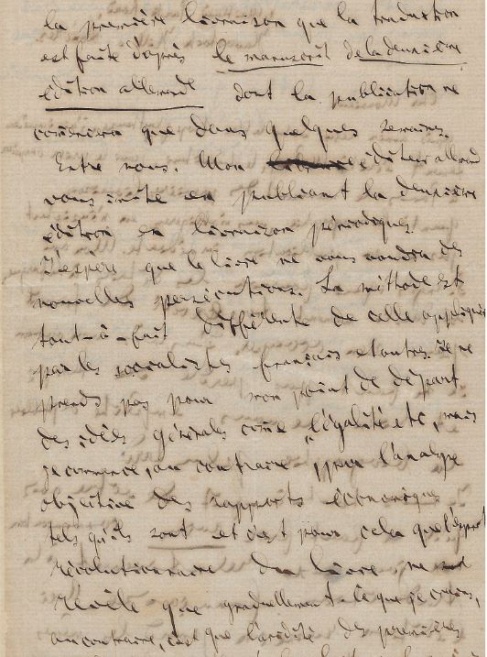 la première livraison que la traduction
est faite d'après le manuscrit de la deuxième
édition allemande dont la publication ne
commencera que dans quelques semaines.
Entre nous. Mon éditeur allemand
vous imite en publiant la deuxième
édition en livraisons périodiques.
J'espère que le livre ne vous vaudra des
nouvelles persécutions. La méthode est
tout-à-fait différente de celle appliquée
par les socialistes français et autres. Je ne
prends pas pour mon point de départ
des idées générales come l'égalité etc, mais
je commence, au contraire, par l'analyse
objective des rapports économiques
tels qu'ils sont et c'est pour cela que l'esprit
révolutionnaire du livre ne
révèle que graduellement. Ce que je crains,
au contraire, c'est que l'aridité des premières